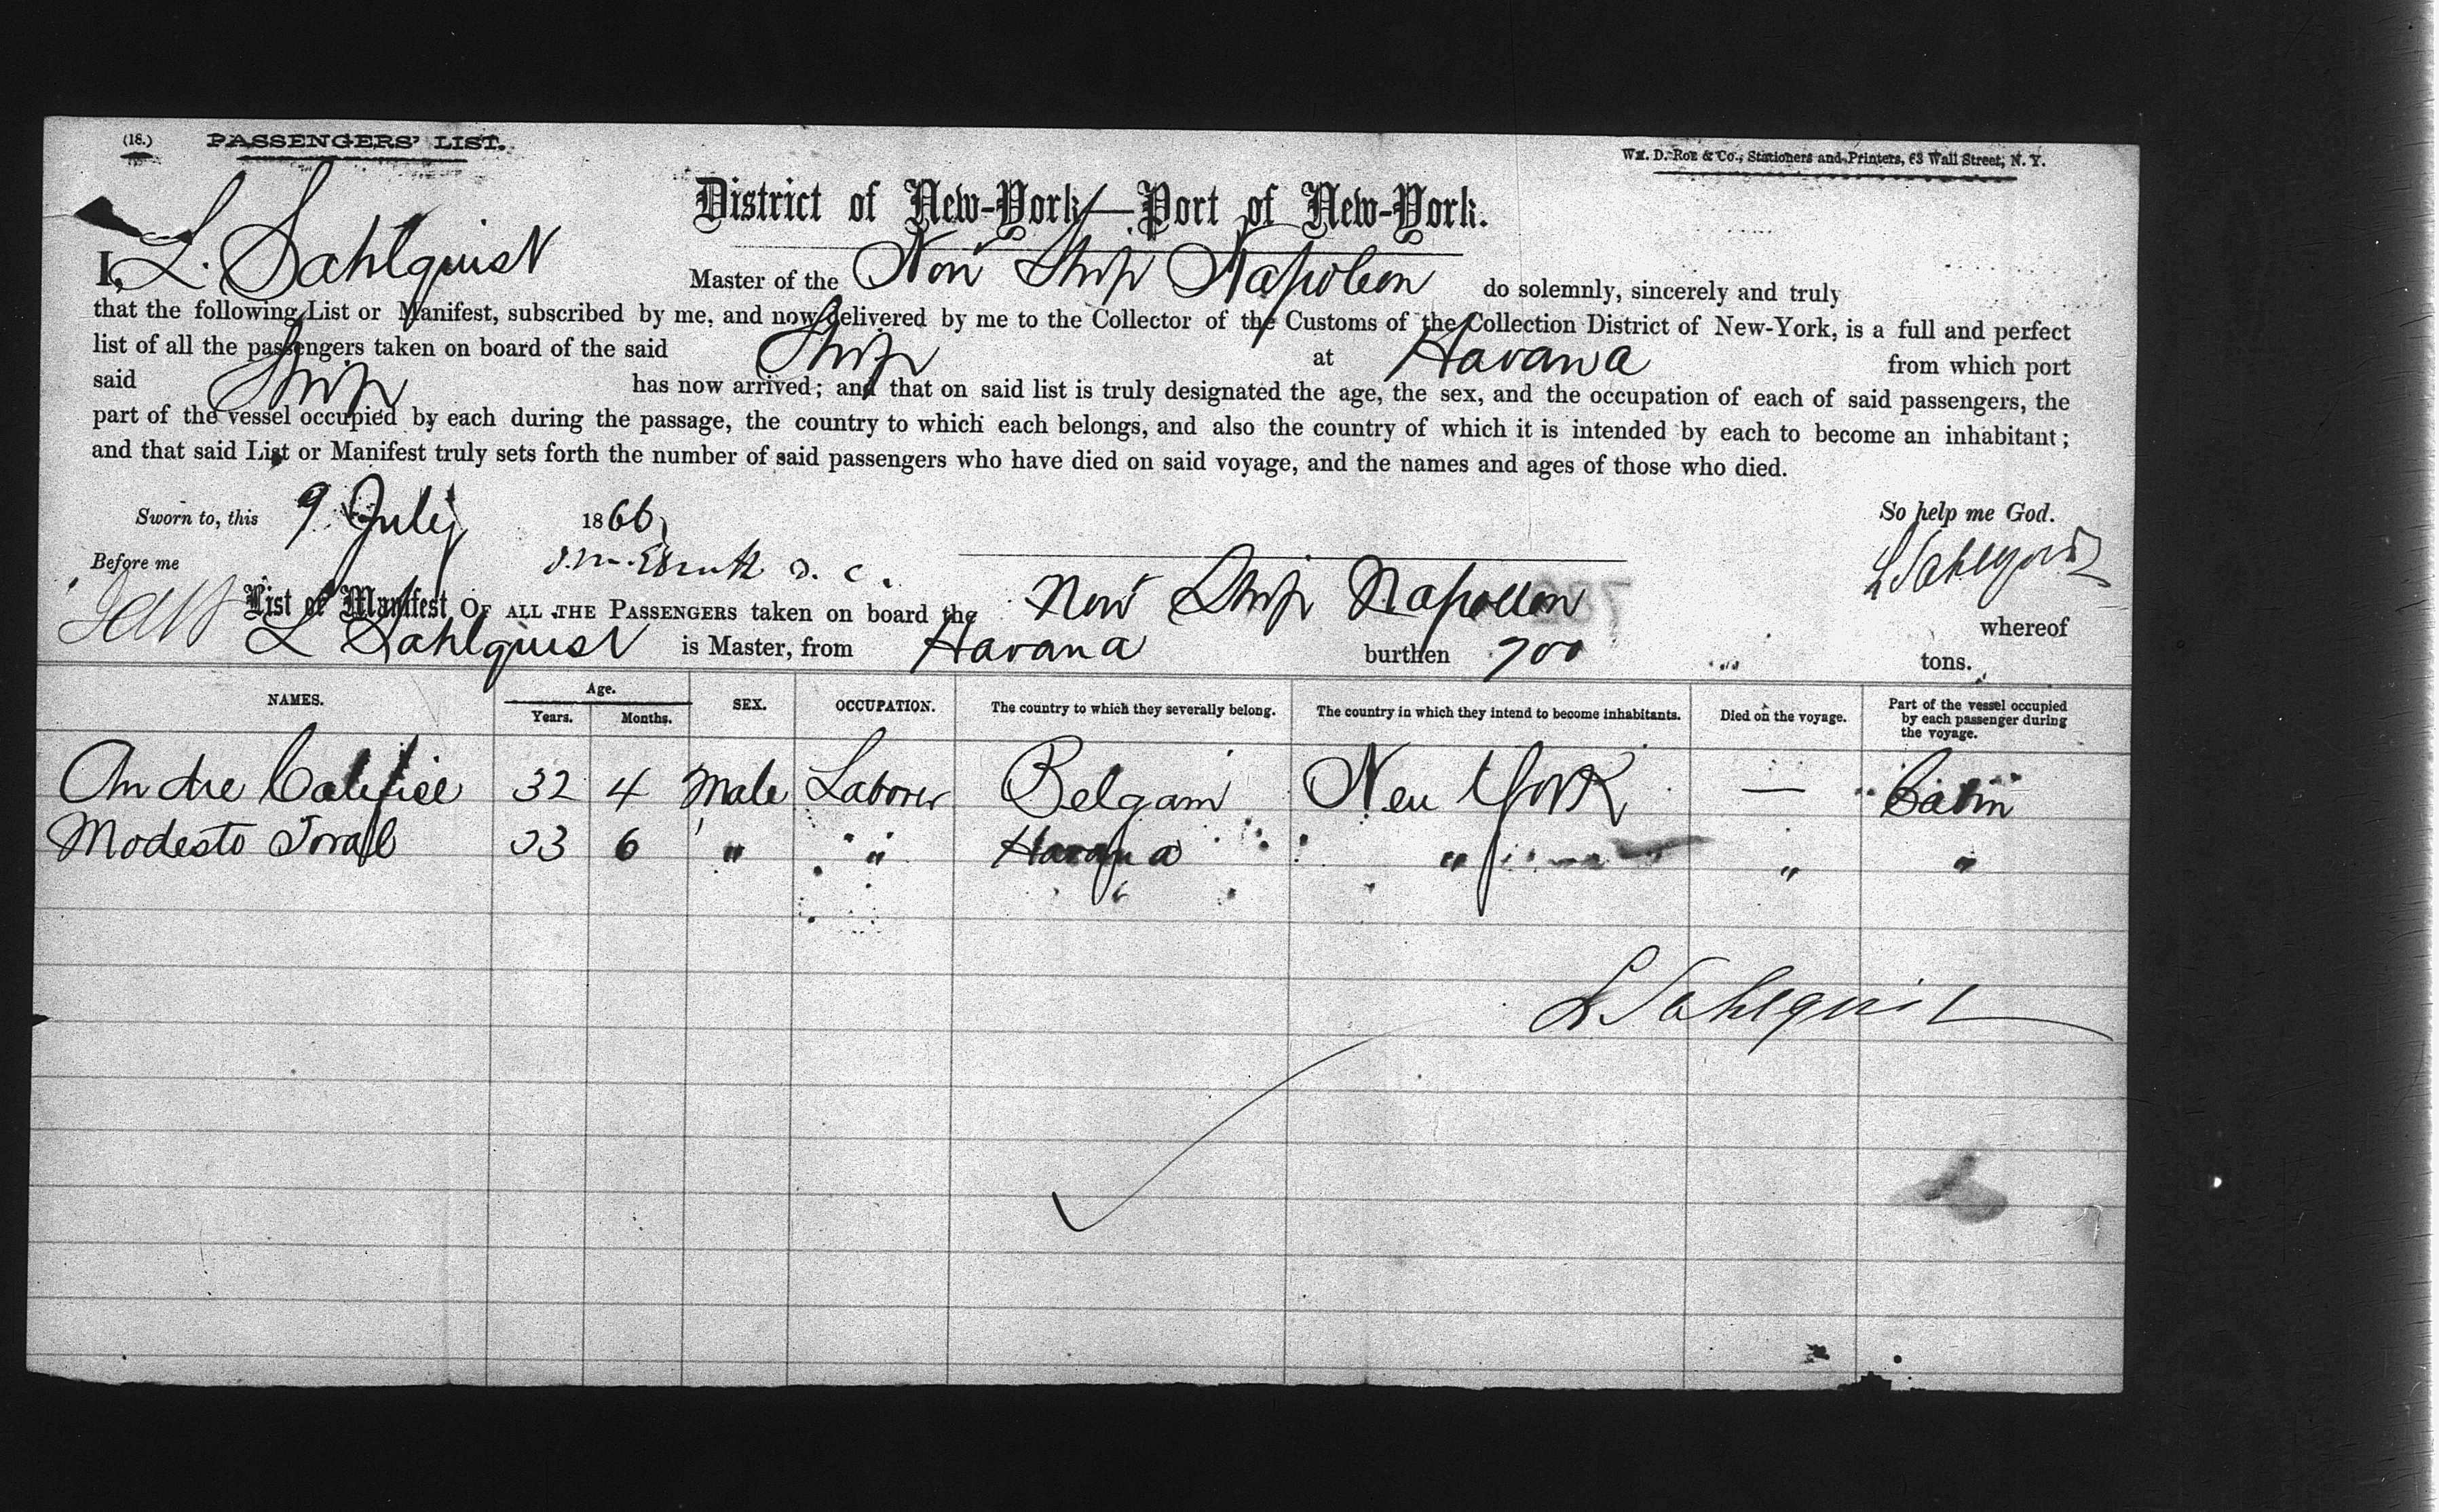 (18.) PASSENGERS' LIST.
Wm. D. Roe & Co., Stationers and Printers, 63 Wall Street, N. Y.
District of New-York—Port of New-York.
I, L. Sahlquist Master of the Nor Ship Napoleon do solemnly, sincerely and truly
that the following List or Manifest, subscribed by me, and now delivered by me to the Collector of the Customs of the Collection District of New-York, is a full and perfect
list of all the passengers taken on board of the said Ship at Havana from which port
said Ship has now arrived; and that on said list is truly designated the age, the sex, and the occupation of each of said passengers, the
part of the vessel occupied by each during the passage, the country to which each belongs, and also the country of which it is intended by each to become an inhabitant;
and that said List or Manifest truly sets forth the number of said passengers who have died on said voyage, and the names and ages of those who died.
Sworn to, this 9 July 1866 So help me God.
Before me L Sahlquist
List or Manifest OF ALL THE PASSENGERS taken on board the Nor Ship Napoleon whereof
L Sahlquist is Master, from Havana burthen 700 tons.
NAMES. Age. Years. Months. SEX. OCCUPATION. The country to which they severally belong. The country in which they intend to become inhabitants. Died on the voyage. Part of the vessel occupied by each passenger during the voyage.
Andre Calefice 32 4 Male Laborer Belgam New York — Cabin
Modesto Toral 33 6 " " Havana " " "
L Sahlquist